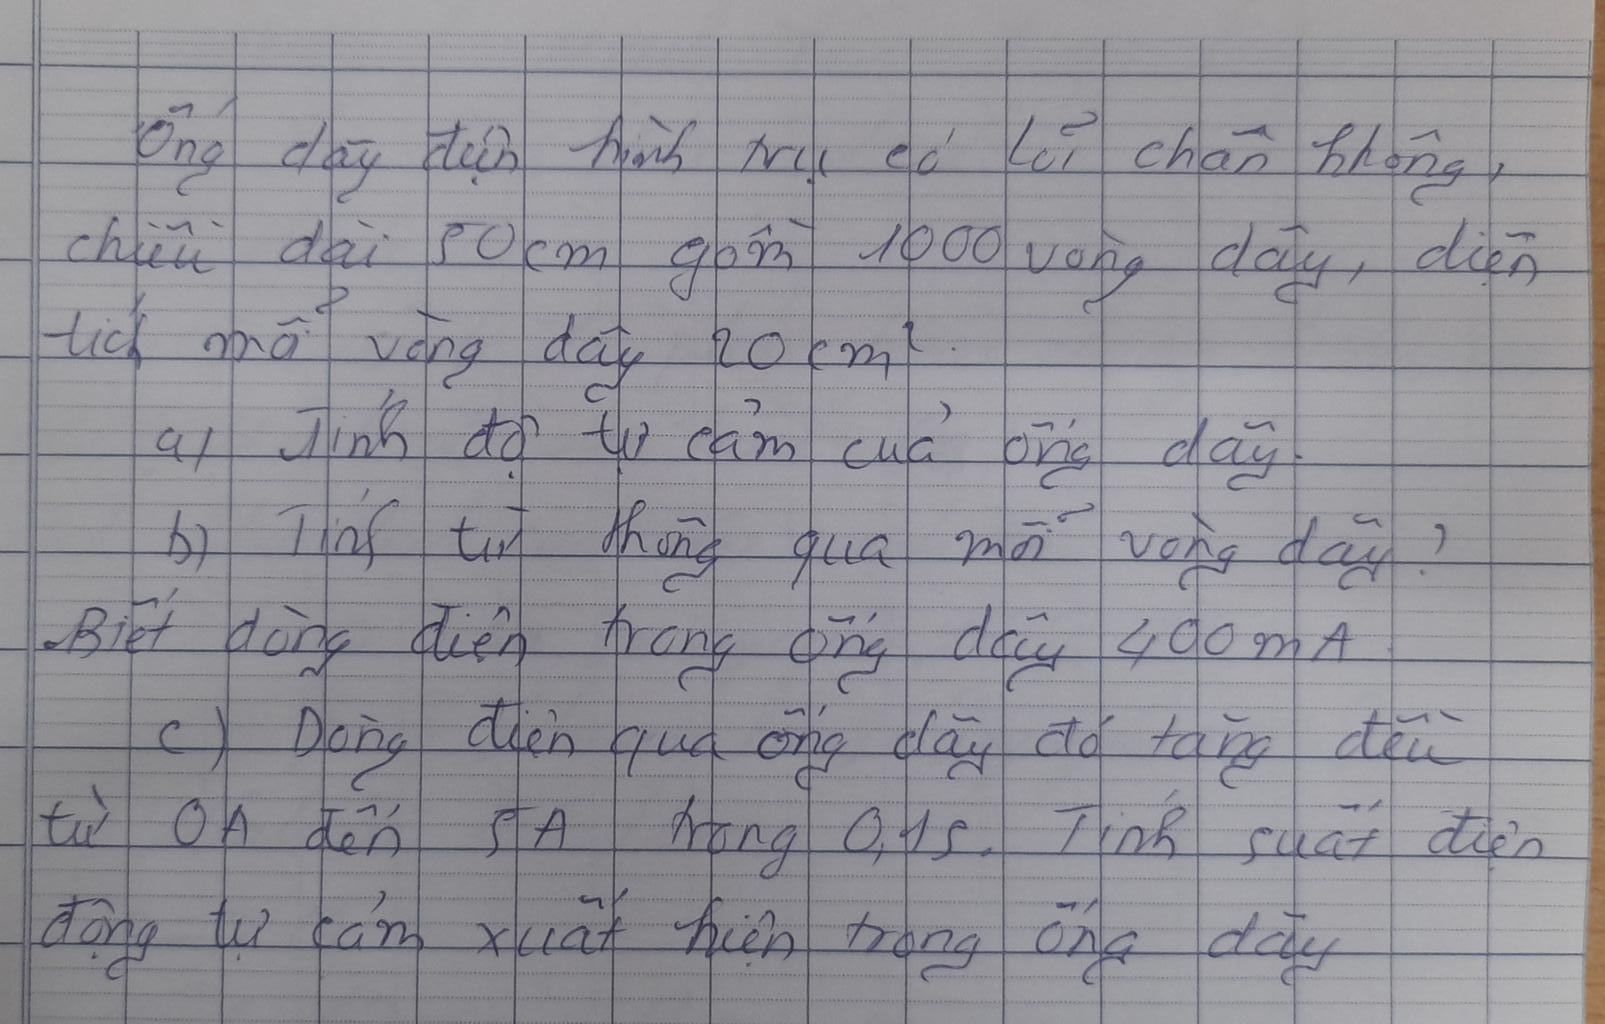 Ống dây điện hình trụ có lõi chân không,
chiều dài 50cm gồm 1000 vòng dây, diện
tích mỗi vòng dây 20cm².
a) Tính độ tự cảm của ống dây.
b) Tính từ thông qua mỗi vòng dây?
Biết dòng điện trong ống dây 400mA
c) Dòng điện qua ống dây đó tăng đều
từ 0A đến 5A trong 0,1s. Tính suất điện
động tự cảm xuất hiện trong ống dây